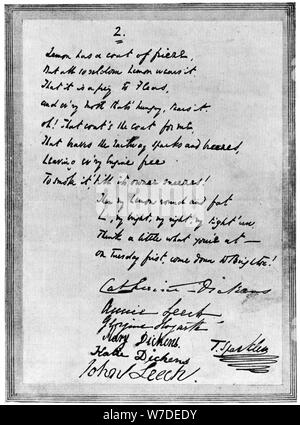 2.
Lemon has a coat of frieze,
But all so seldom Lemon wears it
That it is a prey to Fleas,
and ev'ry Moth that's hungry, tears it.
oh! that coat's the coat for me,
That braves the railway sparks and breezes,
Leaving ev'ry Engine free
To smoke it, till its owner sneezes!
Then my Lemon round and fat
my bright, my right, my tight 'un,
Think a little what you're at —
on Tuesday first, come down to Brighton!
Catherine Dickens
Annie Leech
Georgina Hogarth
Mary Dickens
Katie Dickens
T. Sparkler
John Leech.
alamy
W7DEDY
www.alamy.com